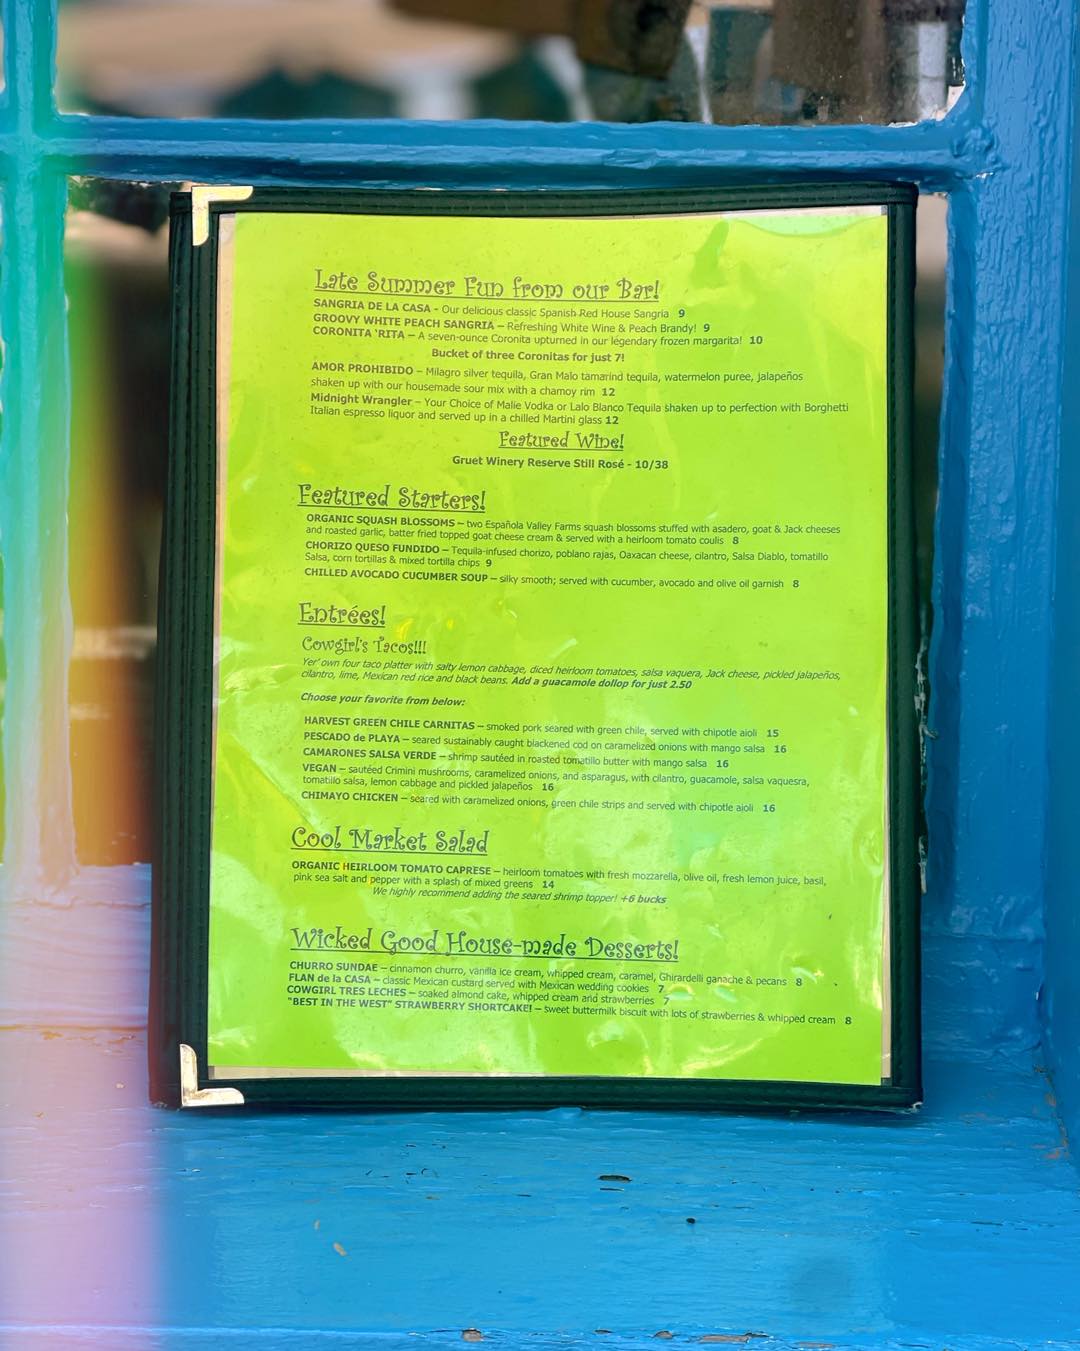 Late Summer Fun from our Bar!
SANGRIA DE LA CASA - Our delicious classic Spanish Red House Sangria 9
GROOVY WHITE PEACH SANGRIA – Refreshing White Wine & Peach Brandy! 9
CORONITA ‘RITA – A seven-ounce Coronita upturned in our legendary frozen margarita! 10
Bucket of three Coronitas for just 7!
AMOR PROHIBIDO – Milagro silver tequila, Gran Malo tamarind tequila, watermelon puree, jalapeños
shaken up with our housemade sour mix with a chamoy rim 12
Midnight Wrangler – Your Choice of Malie Vodka or Lalo Blanco Tequila shaken up to perfection with Borghetti
Italian espresso liquor and served up in a chilled Martini glass 12
Featured Wine!
Gruet Winery Reserve Still Rosé - 10/38
Featured Starters!
ORGANIC SQUASH BLOSSOMS – two Española Valley Farms squash blossoms stuffed with asadero, goat & Jack cheeses
and roasted garlic, batter fried topped goat cheese cream & served with a heirloom tomato coulis 8
CHORIZO QUESO FUNDIDO – Tequila-infused chorizo, poblano rajas, Oaxacan cheese, cilantro, Salsa Diablo, tomatillo
Salsa, corn tortillas & mixed tortilla chips 9
CHILLED AVOCADO CUCUMBER SOUP – silky smooth; served with cucumber, avocado and olive oil garnish 8
Entrées!
Cowgirl's Tacos!!!
Yer' own four taco platter with salty lemon cabbage, diced heirloom tomatoes, salsa vaquera, Jack cheese, pickled jalapeños,
cilantro, lime, Mexican red rice and black beans. Add a guacamole dollop for just 2.50
Choose your favorite from below:
HARVEST GREEN CHILE CARNITAS – smoked pork seared with green chile, served with chipotle aioli 15
PESCADO de PLAYA – seared sustainably caught blackened cod on caramelized onions with mango salsa 16
CAMARONES SALSA VERDE – shrimp sautéed in roasted tomatillo butter with mango salsa 16
VEGAN – sautéed Crimini mushrooms, caramelized onions, and asparagus, with cilantro, guacamole, salsa vaquesra,
tomatillo salsa, lemon cabbage and pickled jalapeños 16
CHIMAYO CHICKEN – seared with caramelized onions, green chile strips and served with chipotle aioli 16
Cool Market Salad
ORGANIC HEIRLOOM TOMATO CAPRESE – heirloom tomatoes with fresh mozzarella, olive oil, fresh lemon juice, basil,
pink sea salt and pepper with a splash of mixed greens 14
We highly recommend adding the seared shrimp topper! +6 bucks
Wicked Good House-made Desserts!
CHURRO SUNDAE – cinnamon churro, vanilla ice cream, whipped cream, caramel, Ghirardelli ganache & pecans 8
FLAN de la CASA – classic Mexican custard served with Mexican wedding cookies 7
COWGIRL TRES LECHES – soaked almond cake, whipped cream and strawberries 7
"BEST IN THE WEST" STRAWBERRY SHORTCAKE! – sweet buttermilk biscuit with lots of strawberries & whipped cream 8